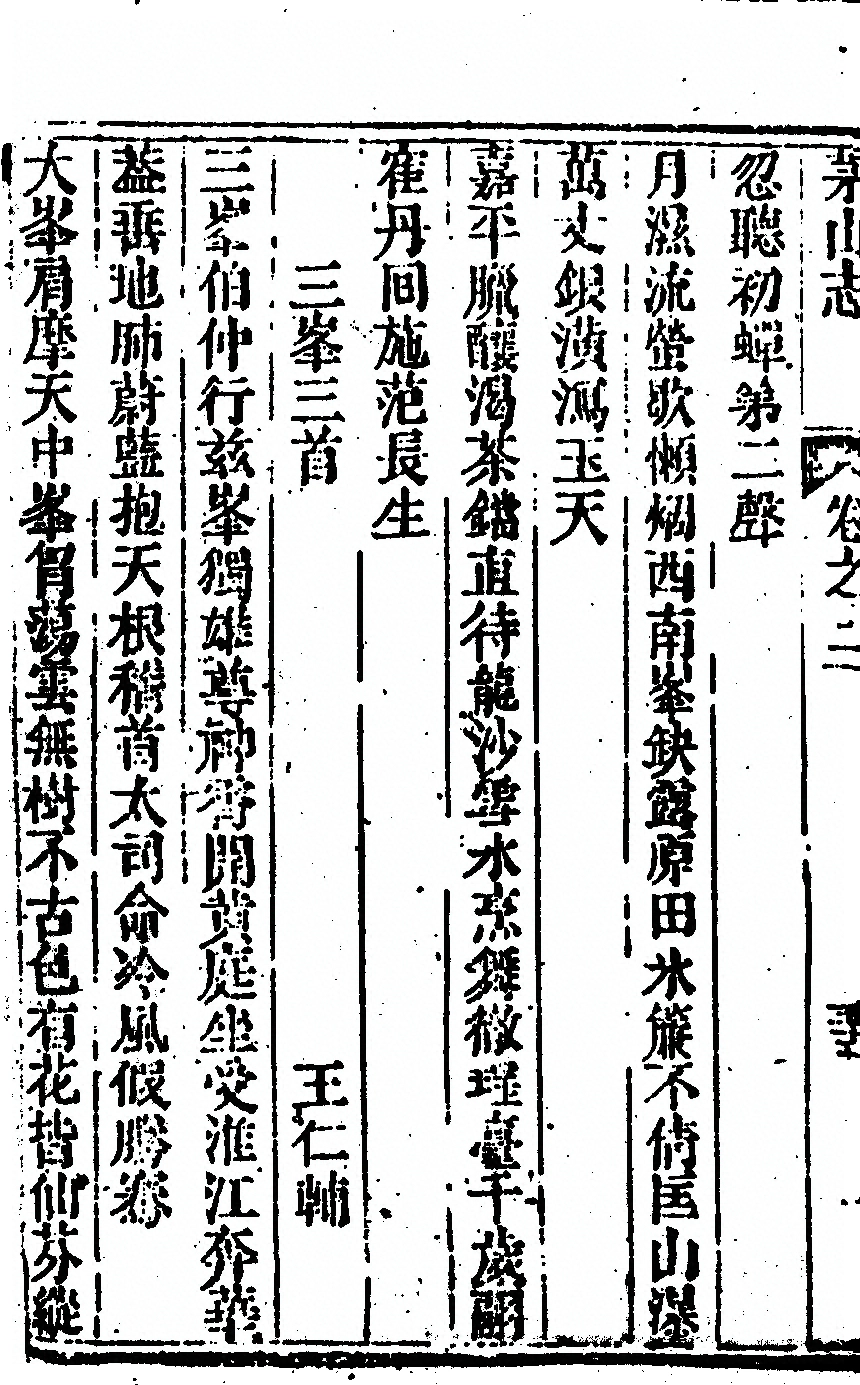 茅山志 卷之二
忽聽初蟬第二聲
月濕流螢歇懶烟西南峯缺露原田水簾不倚匡山瀑
萬丈銀潢瀉玉天
嘉平臘釀渴茶鐺直待龍沙雪水烹舞徹瑤臺千歲
崔丹間施范長生
三峯三首 王仁輔
三峯伯仲行茲峯獨雄尊神脊開黃庭坐受淮江奔華
蓋垂地肺蔚藍抱天根稽首太司命冷風假騰騫
大峯肩摩天中峯胷蕩雲無樹不古色有花皆仙芬縱